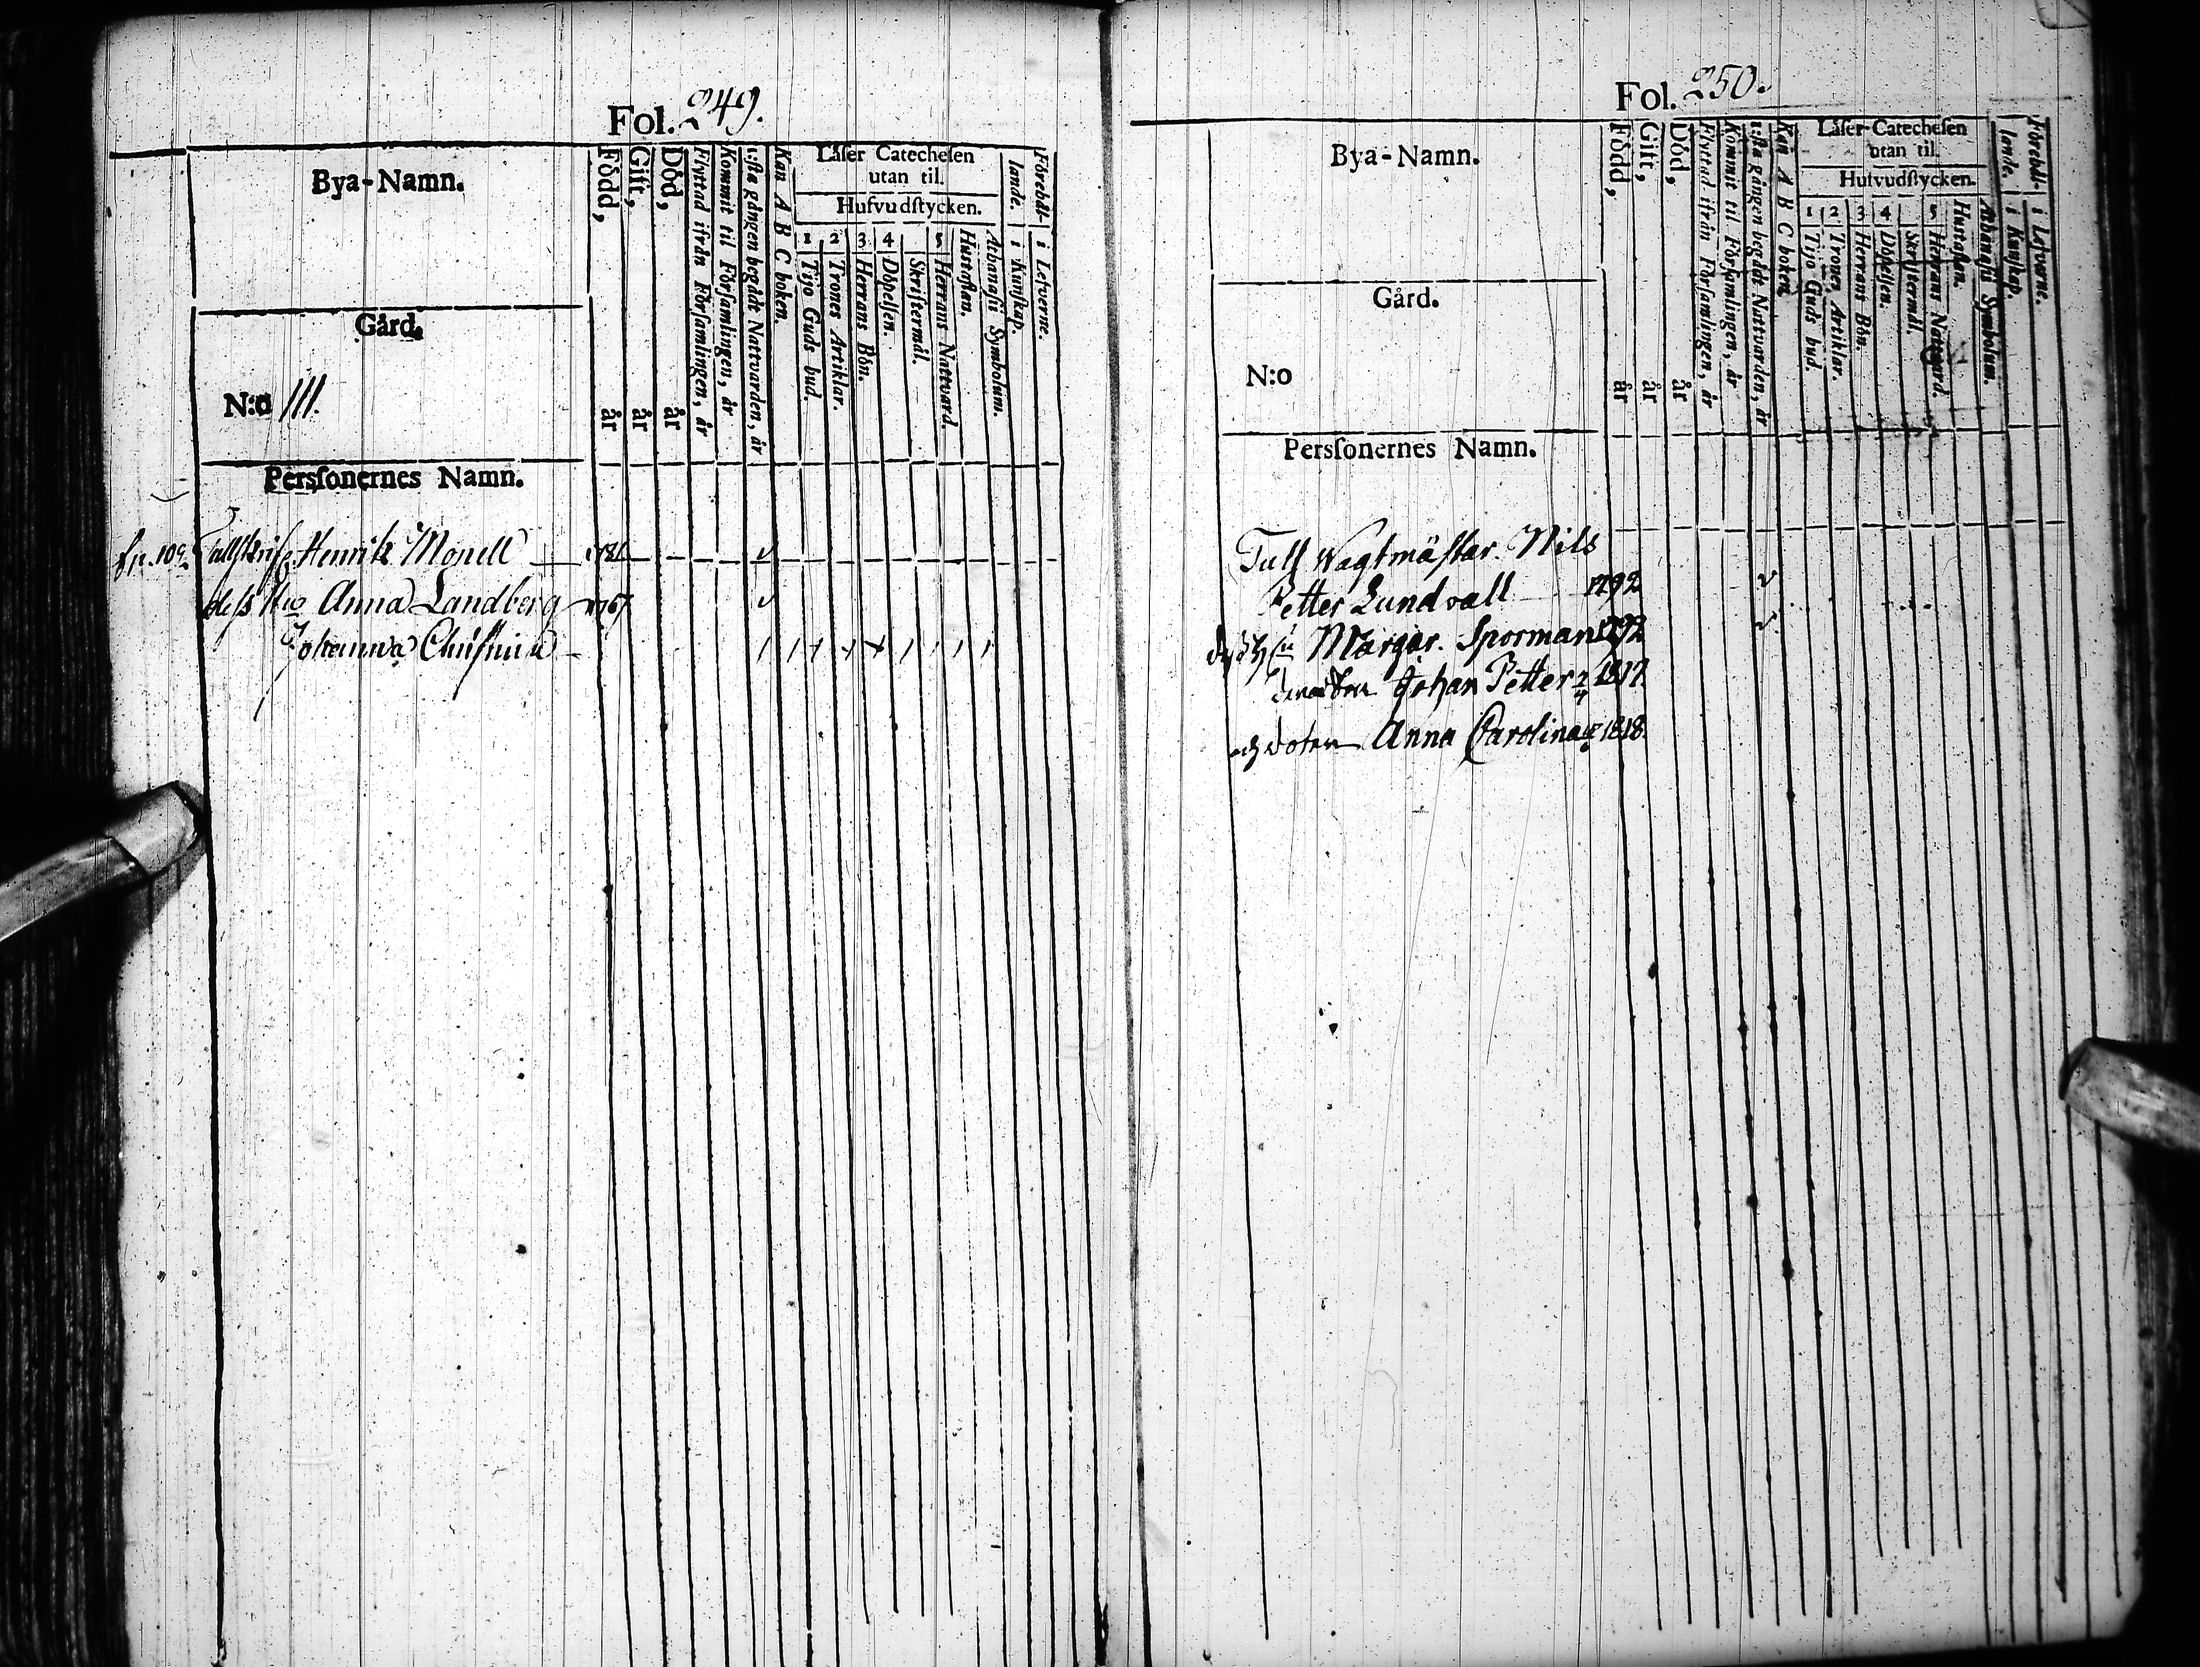 Fol. 249.
Bya-Namn.
Gård.
N:o 111.
Persſonernes Namn.
Född, år
Gift, år
Död, år
Flyttad ifrån Förſamlingen, år
Kommit til Förſamlingen, år
1:ſta gången begådt Nattvarden, år
Kan A B C boken.
Låſer Catecheſen
utan til.
Hufvudſtycken.
1 Tijo Guds bud.
2 Trones Artiklar.
3 Herrans Bön.
4 Döpelſen.
Skriftermål.
5 Herrans Nattvard.
Huſtaflan.
Athanaſii Symbolum.
Förehål-
lande.
i Kunſkap.
i Lefverne.
Henrik Monell
deſs Anna Landberg 1767
Johanna Christina
Fol. 250.
Bya-Namn.
Gård.
N:o
Persſonernes Namn.
Född, år
Gift, år
Död, år
Flyttad ifrån Förſamlingen, år
Kommit til Förſamlingen, år
1:ſta gången begådt Nattvarden, år
Kan A B C boken.
Låſer Catecheſen
utan til.
Hufvudſtycken.
1 Tijo Guds bud.
2 Trones Artiklar.
3 Herrans Bön.
4 Döpelſen.
Skriftermål.
5 Herrans Nattvard.
Huſtaflan.
Athanaſii Symbolum.
Förehål-
lande.
i Kunſkap.
i Lefverne.
Tull Wagtmästar. Nils
Petter Lundvall 1792
Margar. Sporman 1792
Johan Petter 1817.
och doten Anna Carolina 1818.